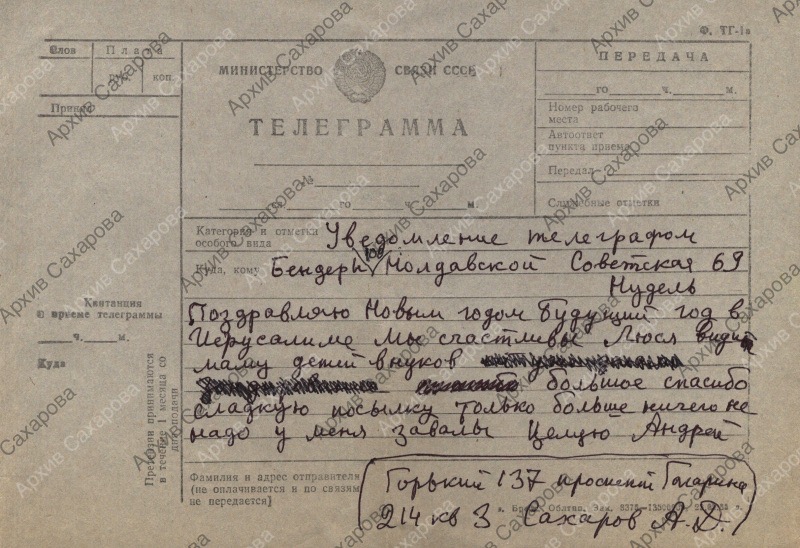 Ф. ТГ-1а
Слов
Плата
руб.
коп.
Принял
МИНИСТЕРСТВО СВЯЗИ СССР
ТЕЛЕГРАММА
№
го ч. м.
ПЕРЕДАЧА
го ч. м.
Номер рабочего
места
Автоответ
пункта приема
Передал
Служебные отметки
Категория и отметки
особого вида
Уведомление телеграфом
Куда, кому
Бендеры Молдавской Советская 69
Нудель
Поздравляю Новым годом Будущий год в
Иерусалиме Мы счастливы Люся видит
маму детей внуков
большое спасибо
сладкую посылку только больше ничего не
надо у меня завалы Целую Андрей
Квитанция
о приеме телеграммы
ч. м.
Куда
Претензии принимаются
в течение 1 месяца со
дня подачи
Фамилия и адрес отправителя
(не оплачивается и по связям
не передается)
Горький 137 проспект Гагарина
214 кв 3 Сахаров А.Д.
Архив Сахарова